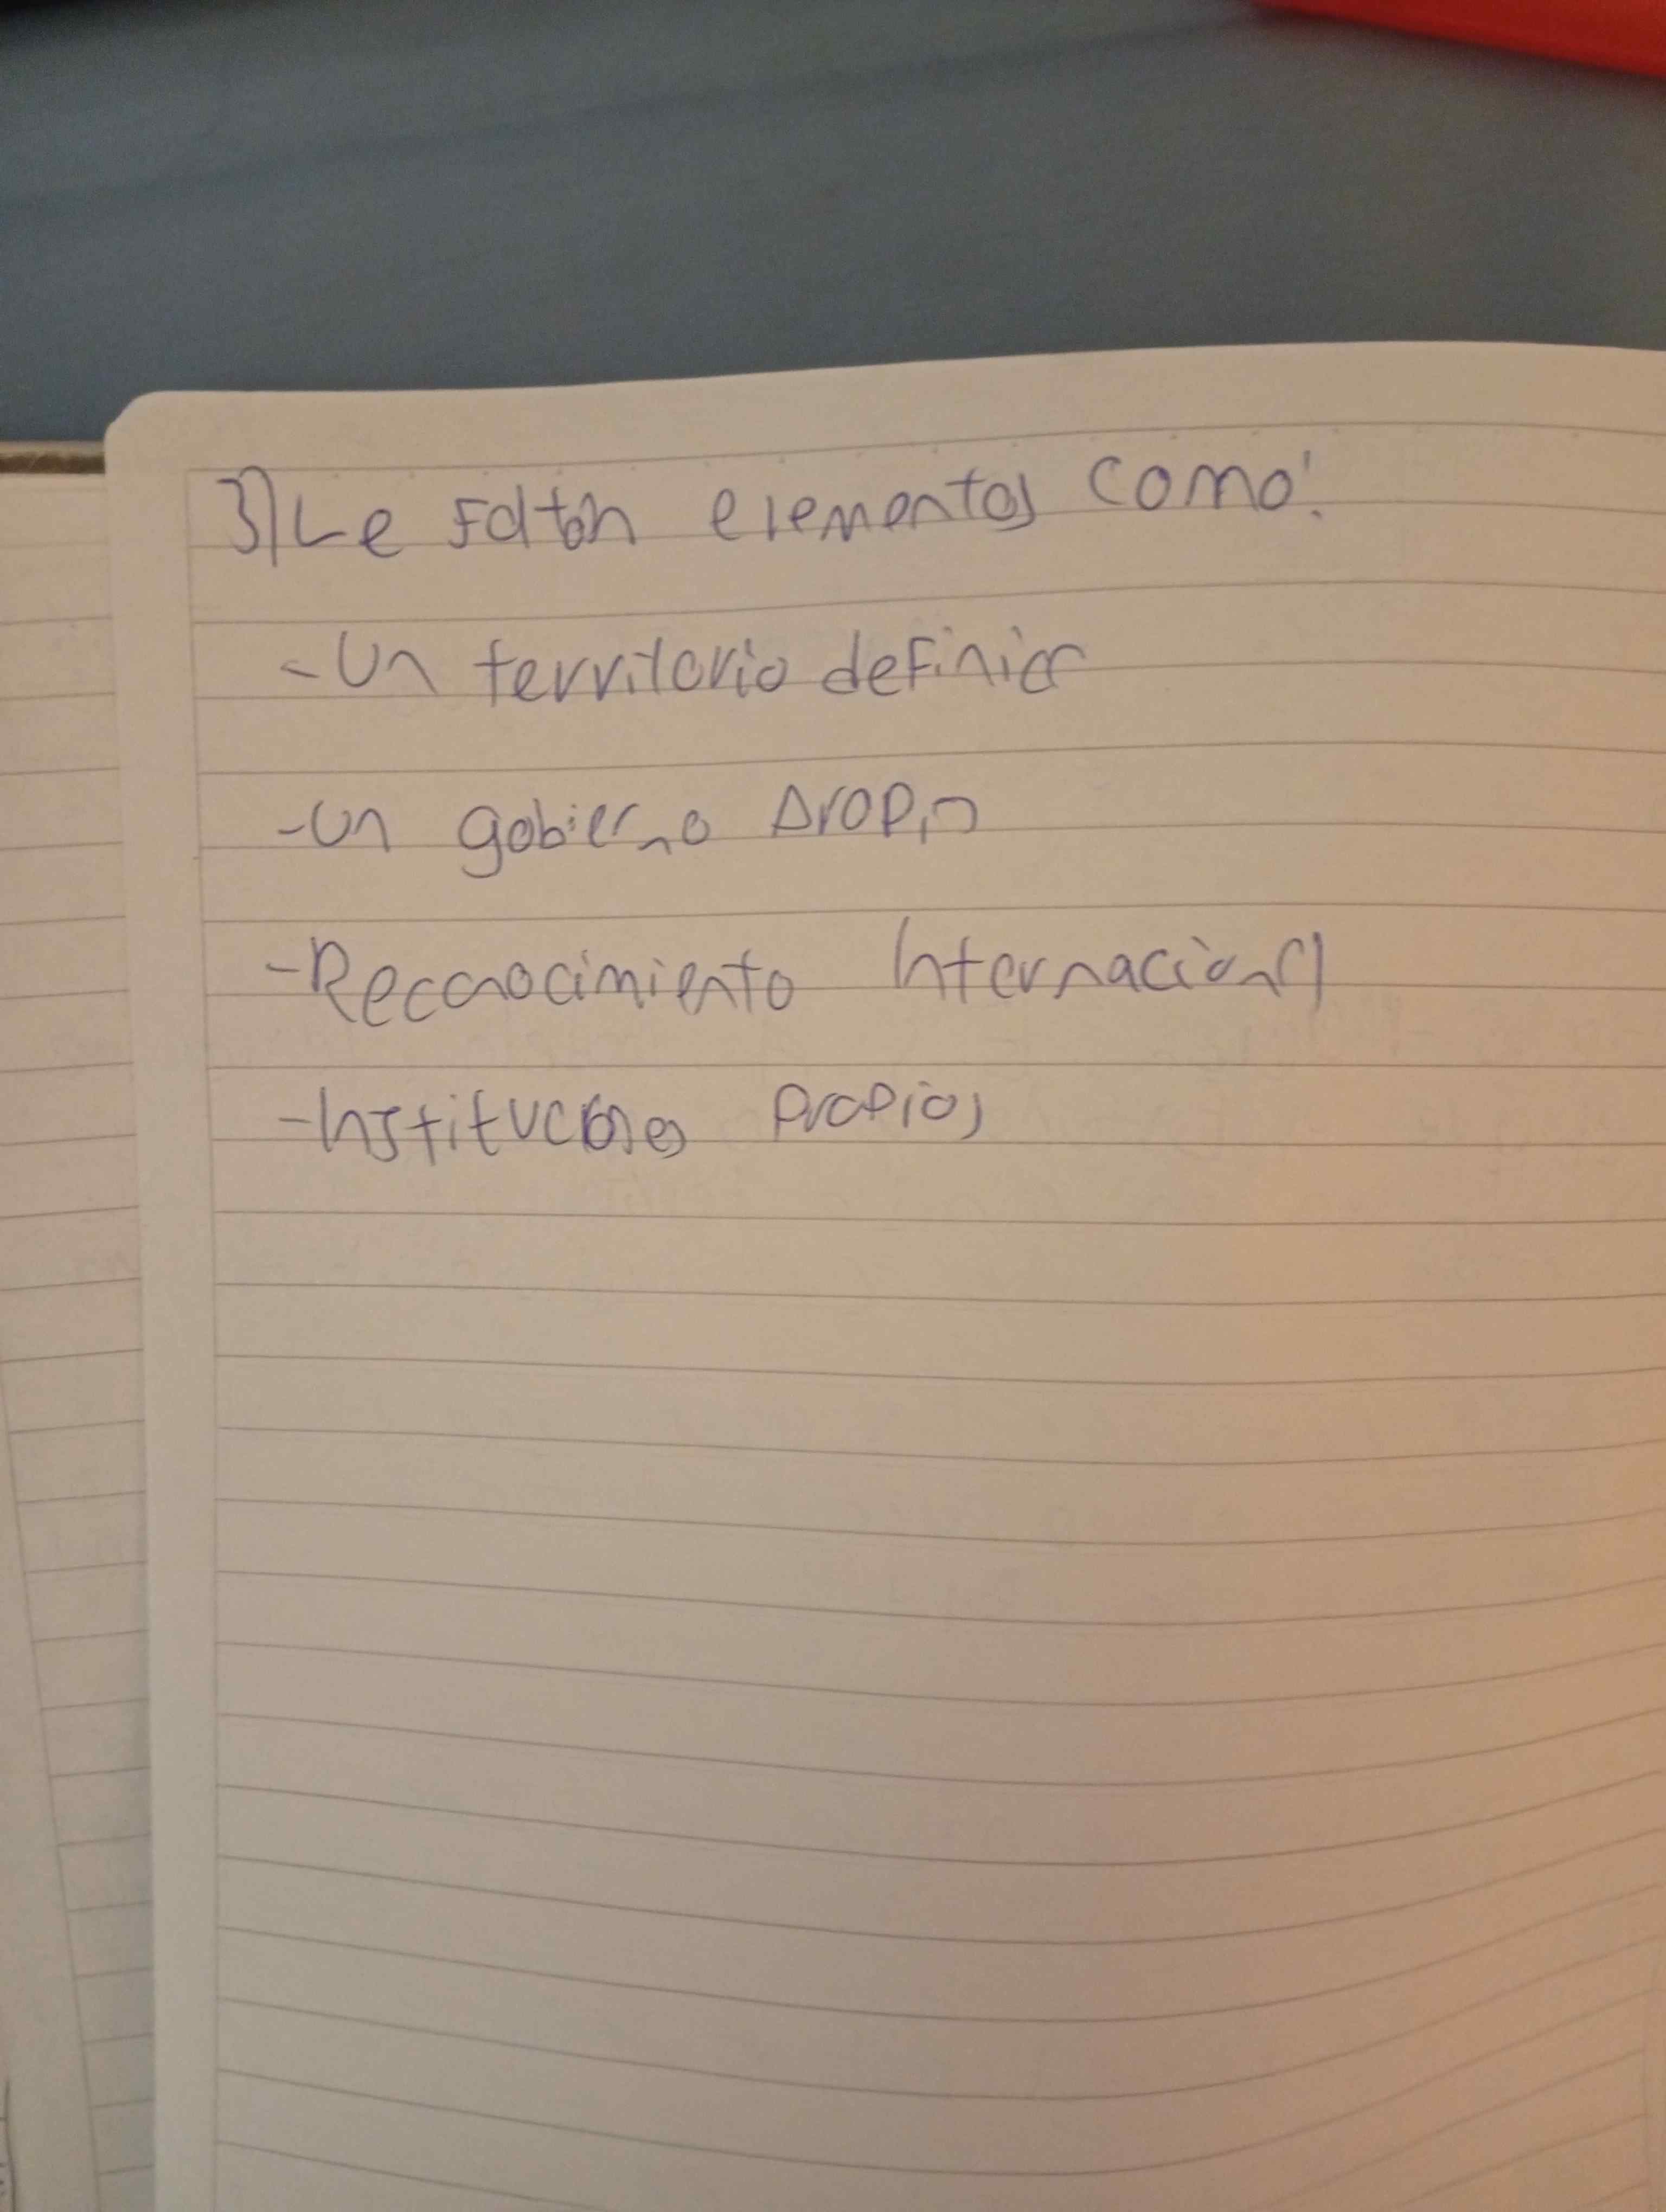 3) Le faltan elementos como:
- Un territorio definido
- Un gobierno propio
- Reconocimiento Internacional
- Instituciones propias